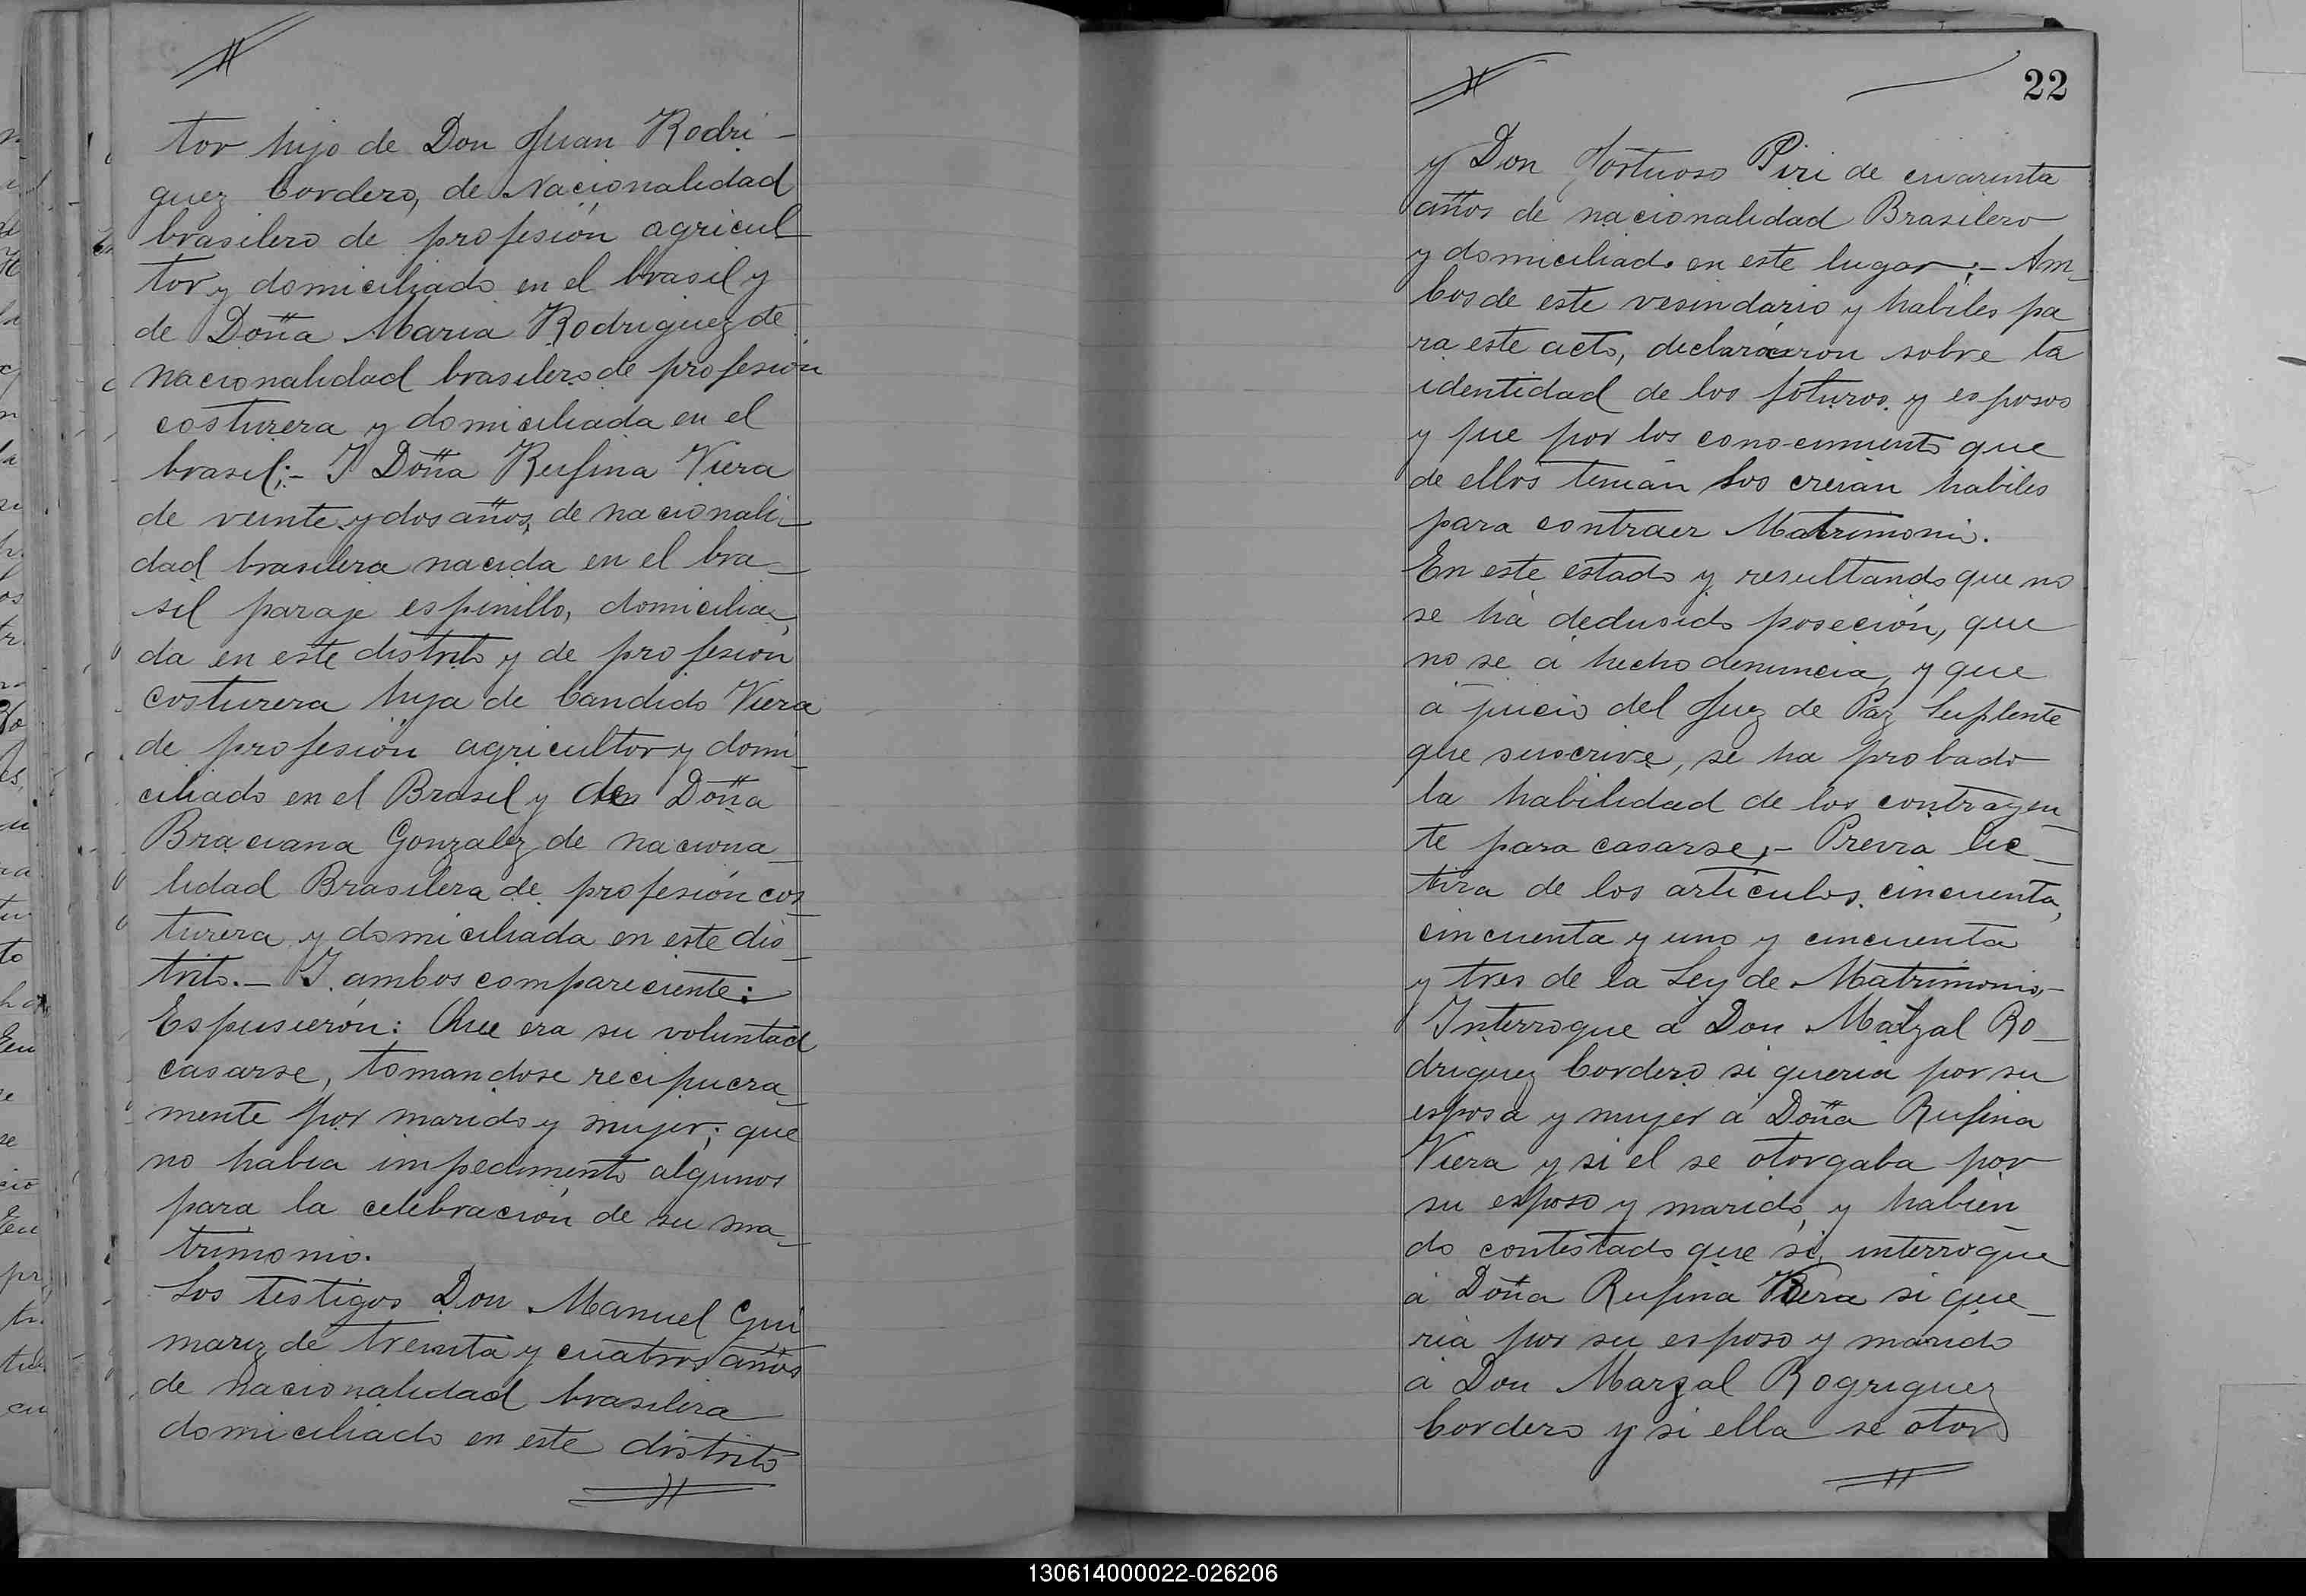 tor hijo de Don Juan Rodri-
guez Cordero, de Nacionalidad
brasilero de profesión agricul-
tor y domiciliado en el brasil y
de Doña Maria Rodriguez de
nacionalidad brasilero de profesión
costurera y domiciliada en el
brasil;- I Doña Rufina Viera
de veinte y dos años, de nacionali-
dad brasilera nacida en el bra-
sil paraje espinillo, domicilia-
da en este distrito y de profesion
costurera hija de Candido Viera
de profesión agricultor y domi-
ciliado en el Brasil y de Doña
Braciana Gonzalez de naciona-
lidad Brasilera de profesión cos-
turera y domiciliada en este dis-
trito.- I ambos compareciente:
Espusierón: Que era su voluntad
casarse, tomandose recipucra-
mente por marido y mujer; que
no habia impedimento algunos
para la celebración de su ma-
trimonio.
Los testigos Don Manuel Gui
mariz de treinta y cuatros años
de nacionalidad brasilera
domiciliado en este distrito
22
y Don Fortuoso Piri de cuarenta
años de nacionalidad Brasilero
y domiciliado en este lugar;- Am-
bos de este vesindario y habiles pa
ra este acto, declararon sobre la
identidad de los foturos y esposos
y que por los conocimiento que
de ellos tenian los creian habiles
para contraer Matrimonio.
En este estado y resultando que no
se há dedusido poseción, que
no se á hecho denuncia, y que
á juicio del Juez de Paz Suplente
que suscrive, se ha probado
la habilidad de los contrayen
te para casarse,- Previa lec-
tira de los articulos cincuenta,
cincuenta y uno y cincuenta
y tres de la Ley de Matrimonio,-
Interroque á Don Matzal Ro-
driguez Cordero si queria por su
esposa y mujer á Doña Rufina
Viera y si el se otorgaba por
su esposo y marido, y habien
do contestado que si, interroque
á Doña Rufina Viera si que-
ria por su esposo y marido
á Don Marzal Rogriguez
Cordero y si ella se otor
130614000022-026206